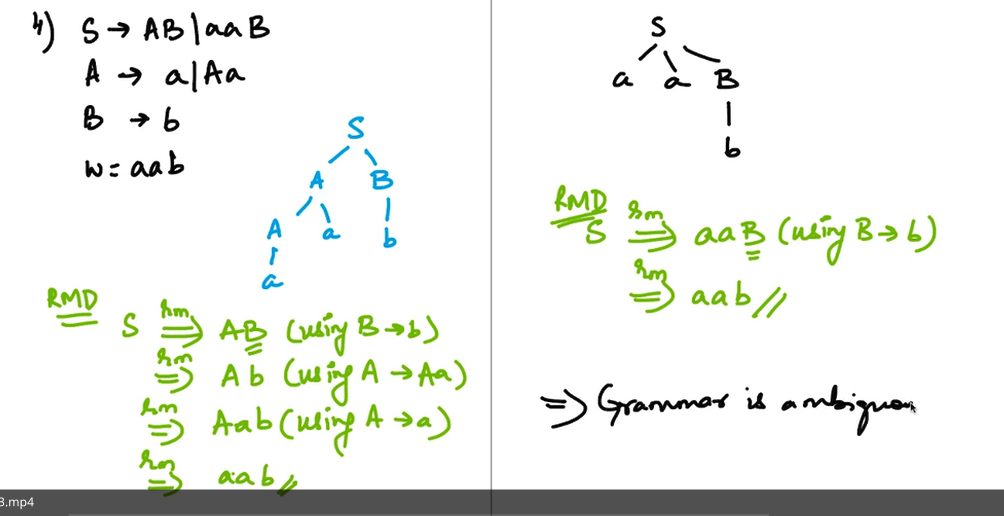 4) S → AB | aaB
A → a | Aa
B → b
w = aab
S
A B
A a b
a
RMD
S rm⇒ AB (using B → b)
rm⇒ Ab (using A → Aa)
rm⇒ Aab (using A → a)
rm⇒ aab //
S
a a B
b
RMD
S rm⇒ aaB (using B → b)
rm⇒ aab //
⇒ Grammar is ambiguou
3.mp4